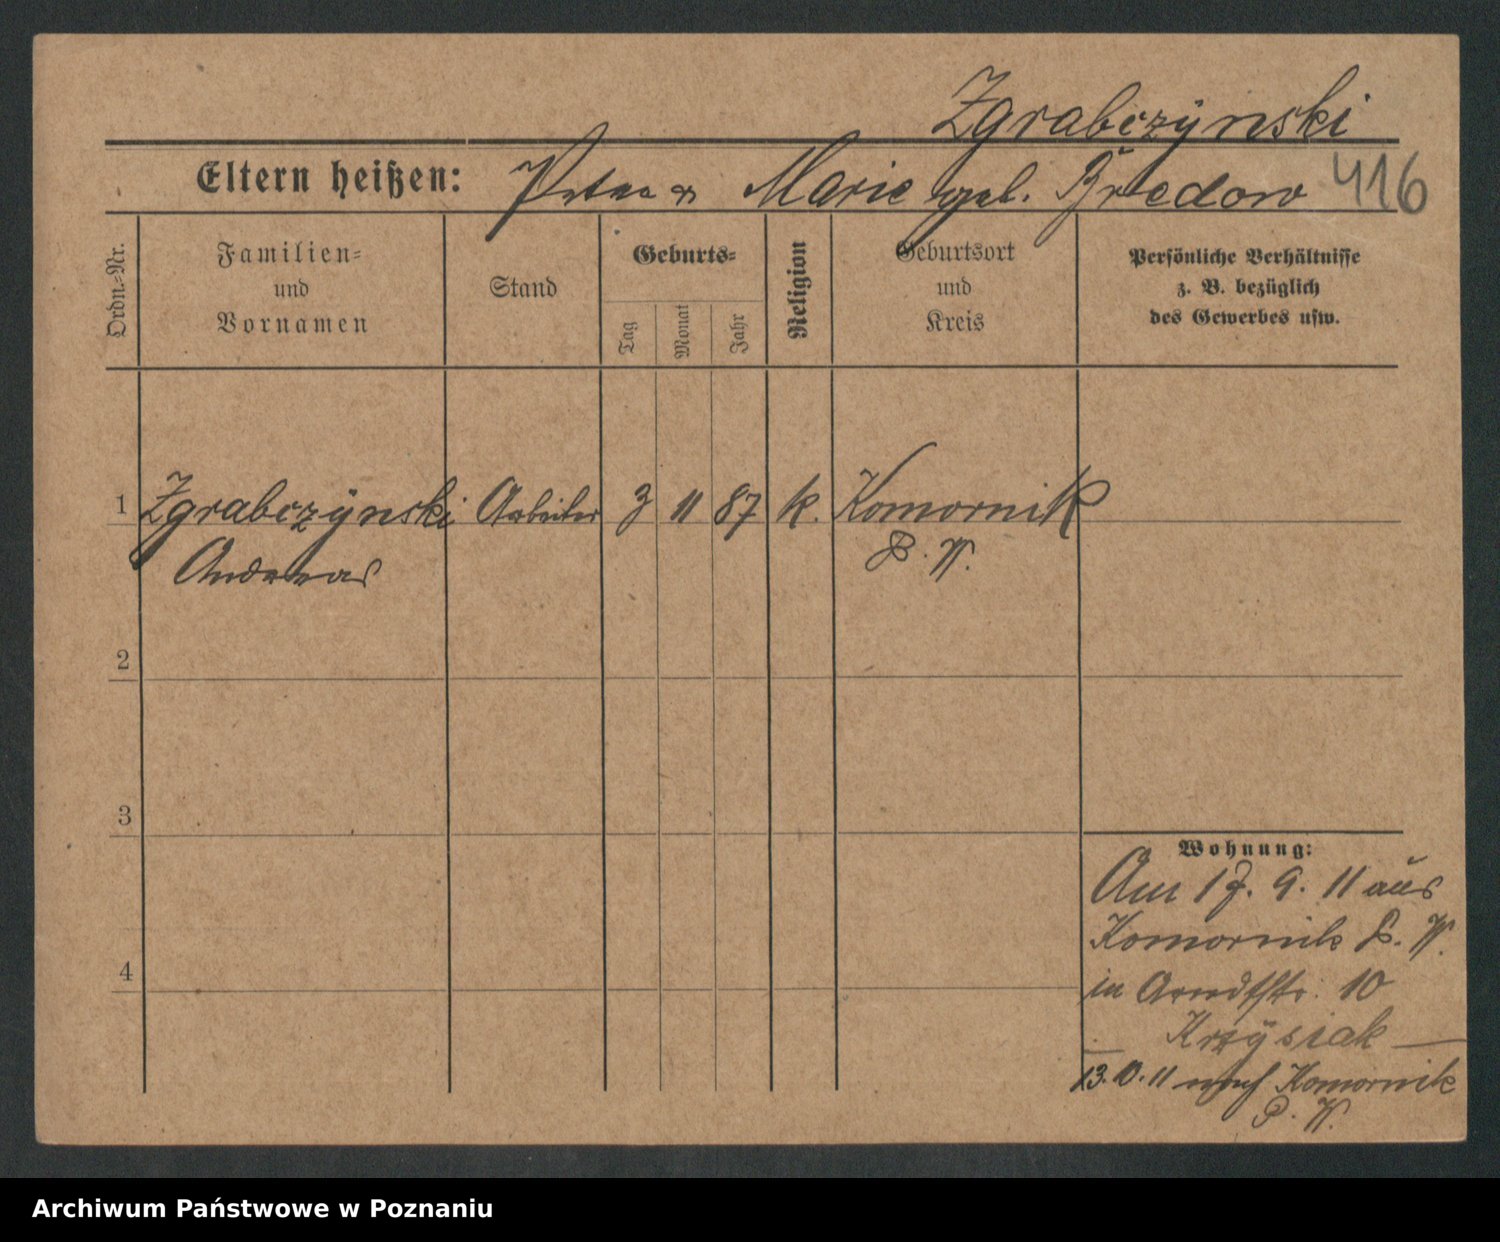 Zgrabczÿnski
Eltern heißen: Peter u Marie geb. Bredow 416
Ordn.=Nr.
Familien=
und
Vornamen
Stand
Geburts=
Tag
Monat
Jahr
Religion
Geburtsort
und
Kreis
Persönliche Verhältnisse
z. B. bezüglich
des Gewerbes usw.
1 Zgrabczÿnski Arbeiter 3 11 87 k. Komornik
Andreas P. W.
2
3
4
Wohnung:
Am 17. 9. 11 aus
Komornik P. W.
in Arndtstr. 10
Krzÿsiak
13. 10. 11 nach Komornik
P. W.
Archiwum Państwowe w Poznaniu